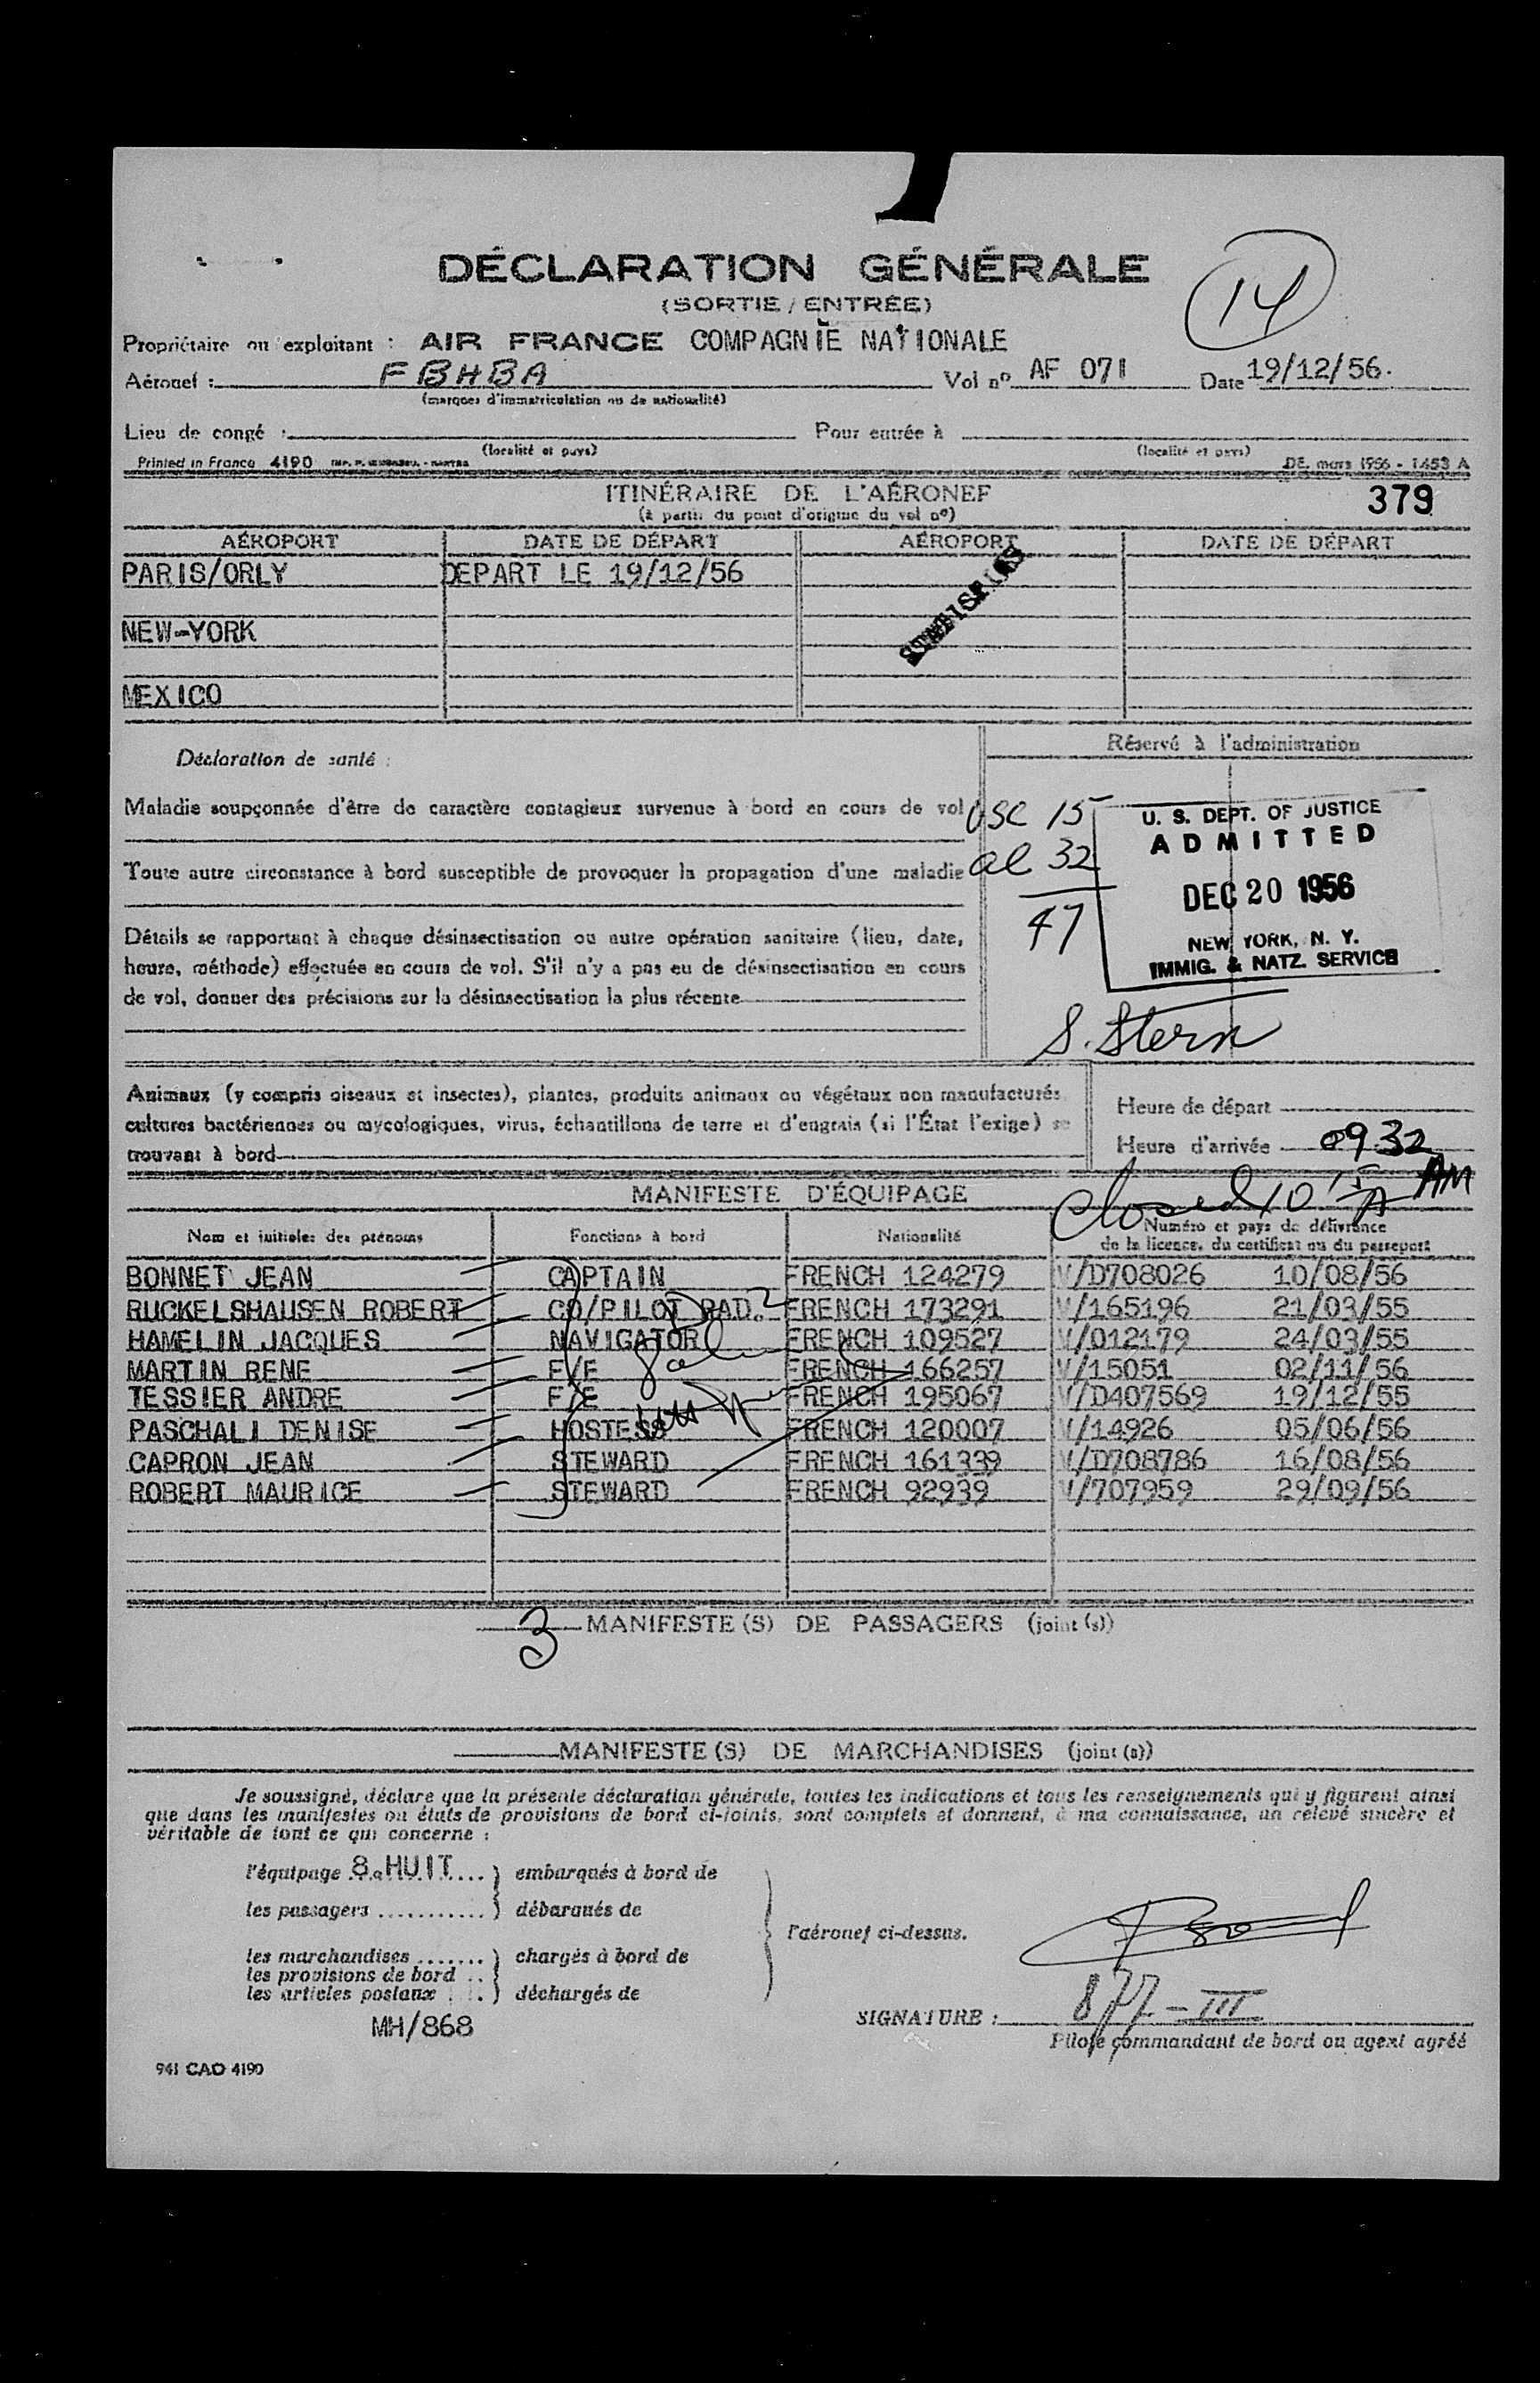 14
DÉCLARATION GÉNÉRALE
(SORTIE / ENTRÉE)
Propriétaire ou exploitant : AIR FRANCE COMPAGNIE NATIONALE
Aéronef : F BHBA Vol nº AF 071 Date 19/12/56.
(marques d'immatriculation ou de nationalité)
Lieu de congé : Pour entrée à
(localité et pays) (localité et pays)
Printed in France 4190 DE. mars 1956 - 1453 A
ITINÉRAIRE DE L'AÉRONEF 379
(à partir du point d'origine du vol nº)
AÉROPORT DATE DE DÉPART AÉROPORT DATE DE DÉPART
PARIS/ORLY DEPART LE 19/12/56
NEW-YORK
MEXICO
Déclaration de santé :
Réservé à l'administration
Maladie soupçonnée d'être de caractère contagieux survenue à bord en cours de vol
Toute autre circonstance à bord susceptible de provoquer la propagation d'une maladie
Détails se rapportant à chaque désinsectisation ou autre opération sanitaire (lieu, date,
heure, méthode) effectuée en cours de vol. S'il n'y a pas eu de désinsectisation en cours
de vol, donner des précisions sur la désinsectisation la plus récente
USC 15
al 32
47
U. S. DEPT. OF JUSTICE
ADMITTED
DEC 20 1956
NEW YORK, N. Y.
IMMIG. & NATZ. SERVICE
S. Stern
Animaux (y compris oiseaux et insectes), plantes, produits animaux ou végétaux non manufacturés,
cultures bactériennes ou mycologiques, virus, échantillons de terre et d'engrais (si l'État l'exige) se
trouvant à bord
Heure de départ
Heure d'arrivée 0932 AM
closed 10 15 A
MANIFESTE D'ÉQUIPAGE
Nom et initiales des prénoms Fonctions à bord Nationalité Numéro et pays de délivrance
de la licence, du certificat ou du passeport
BONNET JEAN CAPTAIN FRENCH 124279 V/D708026 10/08/56
RUCKELSHAUSEN ROBERT CO/PILOT RAD. FRENCH 173291 V/165196 21/03/55
HAMELIN JACQUES NAVIGATOR FRENCH 109527 V/012179 24/03/55
MARTIN RENE F/E FRENCH 166257 V/15051 02/11/56
TESSIER ANDRE F/E FRENCH 195067 V/D407569 19/12/55
PASCHALI DENISE HOSTESS FRENCH 120007 V/14926 05/06/56
CAPRON JEAN STEWARD FRENCH 161339 V/D708786 16/08/56
ROBERT MAURICE STEWARD FRENCH 92939 V/707959 29/09/56
3 MANIFESTE (S) DE PASSAGERS (joint (s))
MANIFESTE (S) DE MARCHANDISES (joint (s))
Je soussigné, déclare que la présente déclaration générale, toutes les indications et tous les renseignements qui y figurent ainsi
que dans les manifestes ou états de provisions de bord ci-joints, sont complets et donnent, à ma connaissance, un relevé sincère et
véritable de tout ce qui concerne :
l'équipage 8. HUIT ) embarqués à bord de
les passagers ........... ) débarqués de
l'aéronef ci-dessus.
les marchandises ....... ) chargés à bord de
les provisions de bord ..
les articles postaux . ) déchargés de
MH/868
877-III
SIGNATURE :
Pilote commandant de bord ou agent agréé
941 CAO 4190